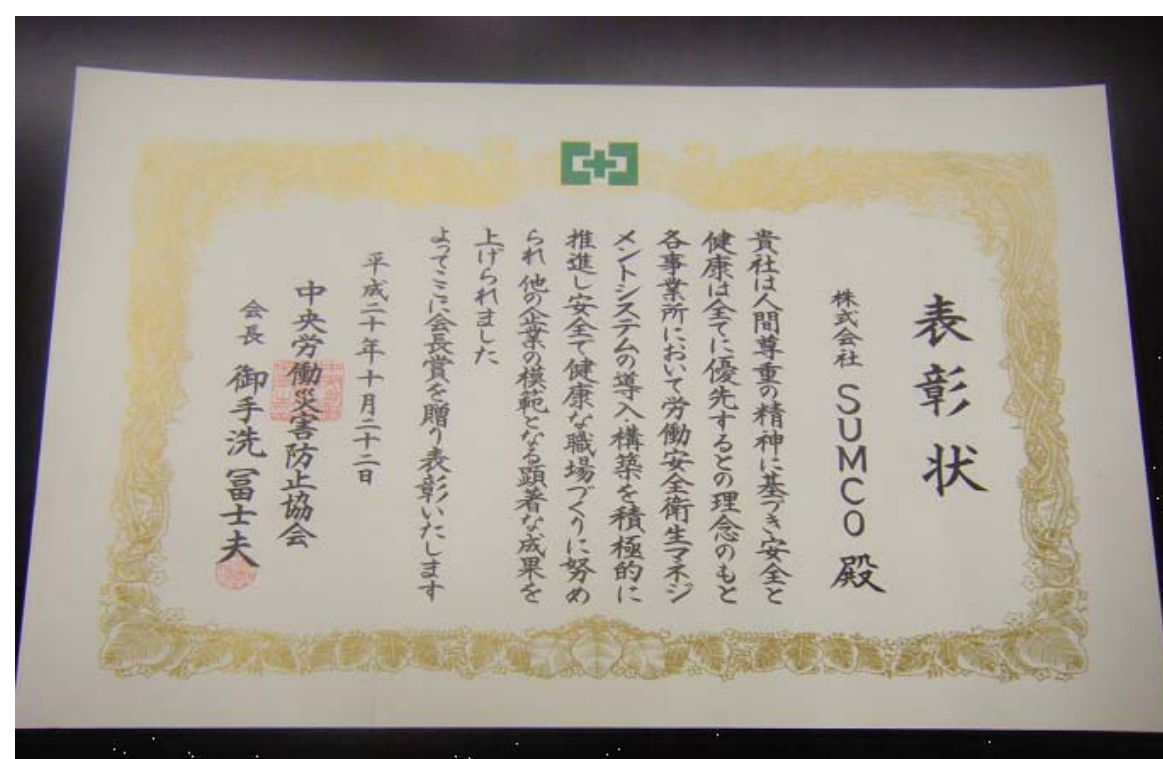 表彰状
株式会社 SUMCO 殿
貴社は人間尊重の精神に基づき安全と
健康は全てに優先するとの理念のもと
各事業所において労働安全衛生マネジ
メントシステムの導入・構築を積極的に
推進し安全で健康な職場づくりに努め
られ他の企業の模範となる顕著な成果を
上げられました
よってここに会長賞を贈り表彰いたします
平成二十年十月二十二日
中央労働災害防止協会
会長 御手洗 冨士夫